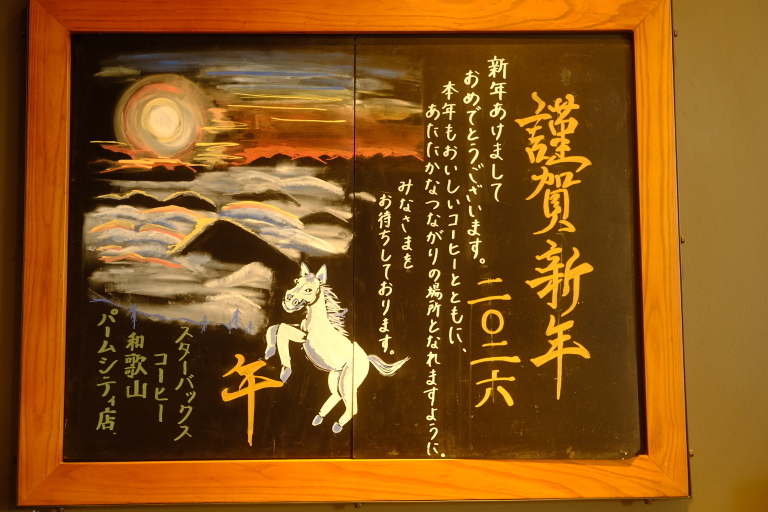 謹賀新年
二〇二六
新年あけまして
おめでとうございます。
本年もおいしいコーヒーとともに、
あたたかなつながりの場所となれますように。
みなさまを
お待ちしております。
午
スターバックス
コーヒー
和歌山
パームシティ店